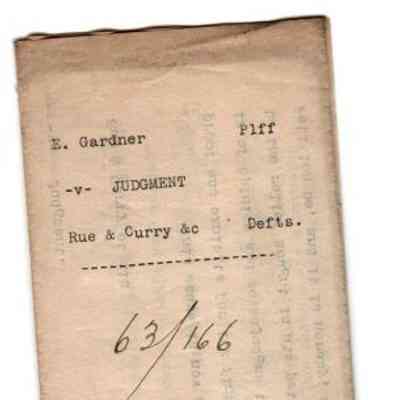 E. Gardner Plff
-v- JUDGMENT
Rue & Curry &c Defts.
63/166